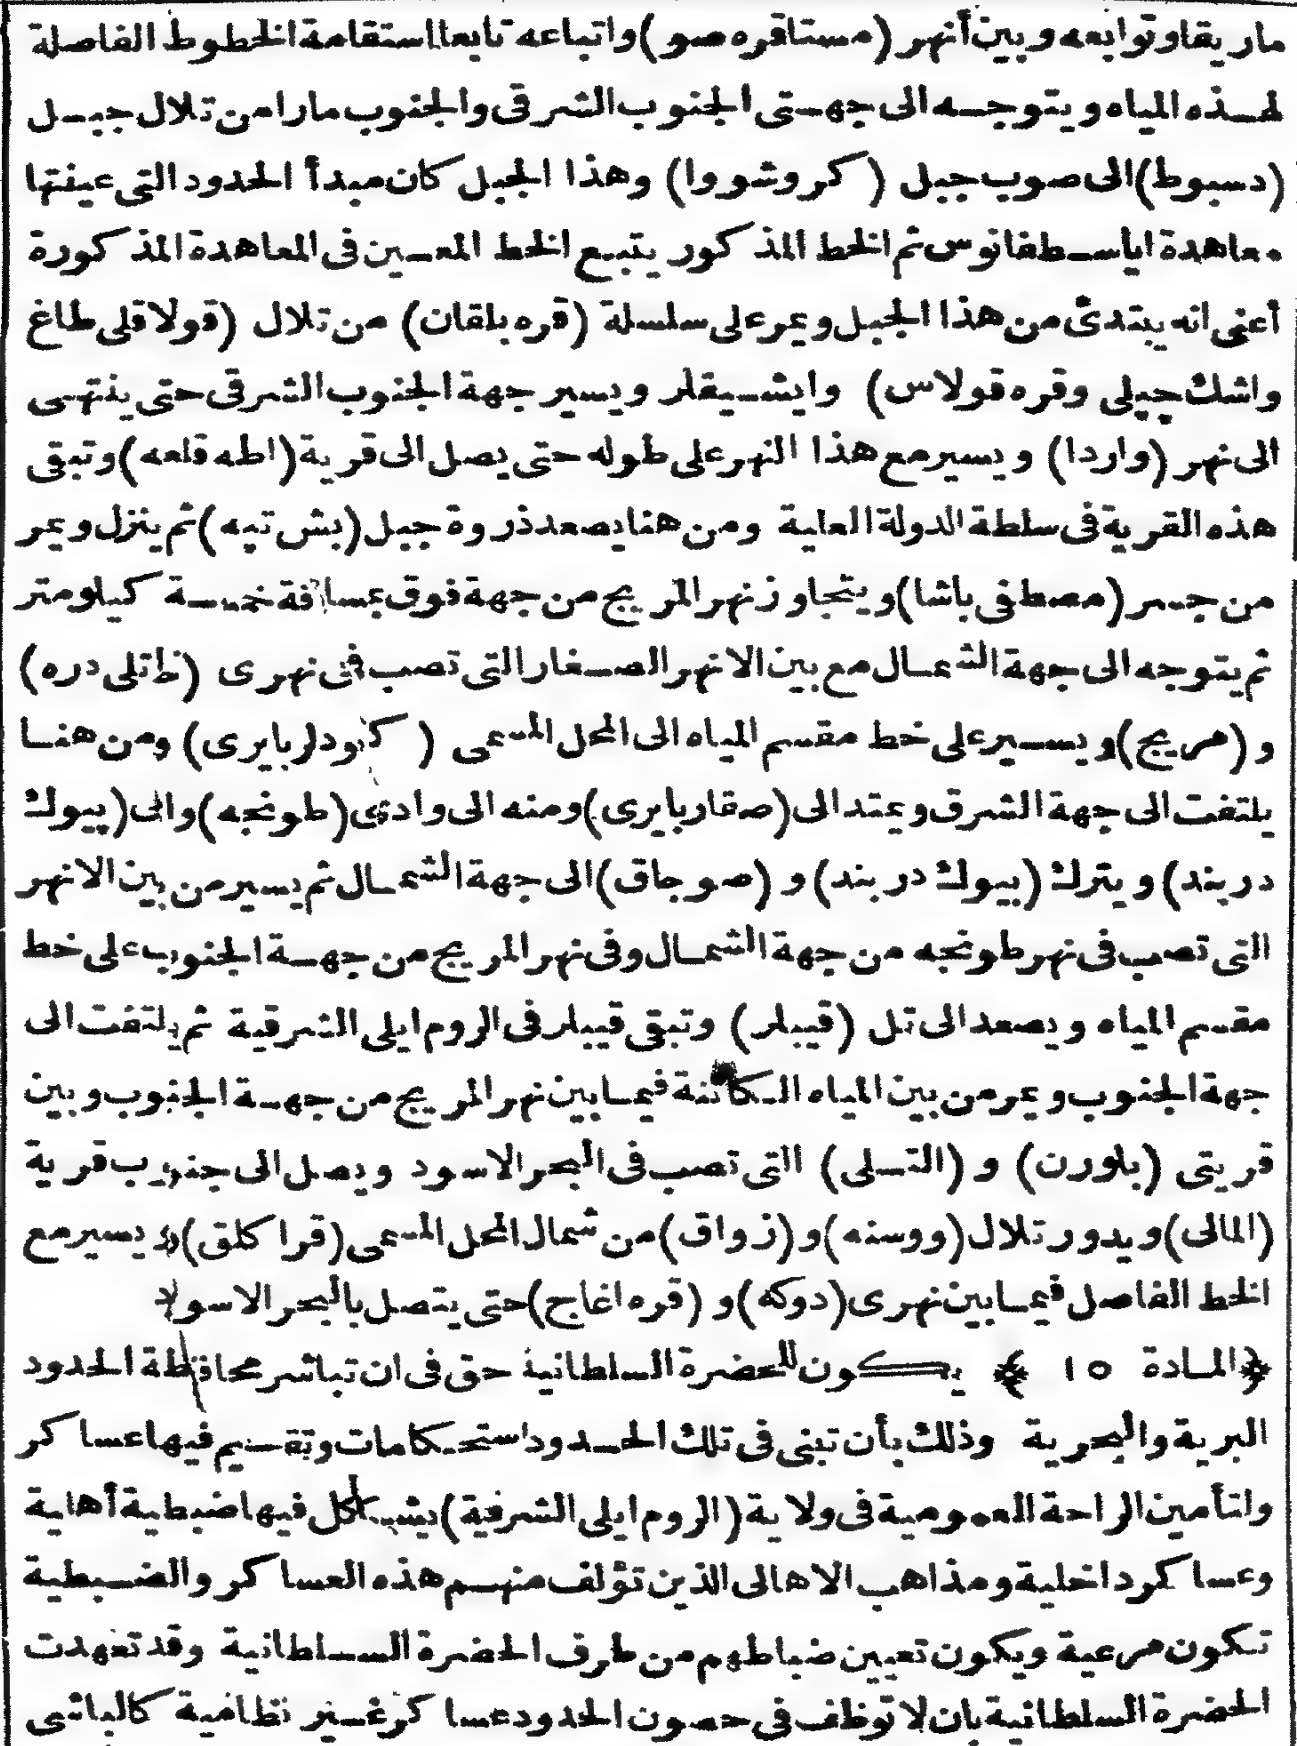 ماريقاوتوابعه وبين أنهر (مستاقره صو) واتباعه تابعا استقامة الخطوط الفاصلة
لهـذه المياه ويتوجـه الى جهـتى الجنوب الشرقى والجنوب مارا من تلال جبـل
(دسبوط) الى صوب جبل (كروشووا) وهذا الجبل كان مبدأ الحدود التى عينتها
معاهدة اياسـطفانوس ثم الخط المذكور يتبـع الخط المعـين فى المعاهدة المذكورة
أعنى انه يبتدئ من هذا الجبل ويمر على سلسلة (قره بلقان) من تلال (قولاقلى طاغ
واشك چپلى وقره قولاس) وايشـيقلر ويسير جهة الجنوب الشرقى حتى ينتهـى
الى نهر (واردا) ويسير مع هذا النهر على طوله حتى يصل الى قرية (اطه قلعه) وتبقى
هذه القرية فى سلطة الدولة العلية ومن هنا يصعد ذروة جبل (بش تپه) ثم ينزل ويمر
من جـسر (مصطفى باشا) ويتجاوز نهر المريج من جهة فوق بمسافة خمسـة كيلومتر
ثم يتوجه الى جهة الشمـال مع بين الانهر الصـغار التى تصب فى نهرى (خانلى دره)
و (مريج) ويسـير على خط مقسم المياه الى المحل المسمى ( كودلربايرى) ومن هنـا
يلتفت الى جهة الشرق ويمتد الى (صقار بايرى) ومنه الى وادى (طونجه) والى (پيوك
دربند) ويترك (بيوك دربند) و (صوجاق) الى جهة الشمـال ثم يسير من بين الانهر
التى تصب فى نهر طونجه من جهة الشمـال وفى نهر المريج من جهـة الجنوب على خط
مقسم المياه ويصعد الى تل (قيبلر) وتبقى قيبلر فى الروم ايلى الشرقية ثم يلتفت الى
جهة الجنوب ويمر من بين المياه الكائنة فيمـا بين نهر المريج من جهـة الجنوب وبين
قريتى (بلورن) و (التـلى) التى تصب فى البحر الاسود ويصل الى جنوب قرية
(المالى) ويدور تلال (ووسنه) و (زواق) من شمال المحل المسمى (قراكلق) ويسير مع
الخط الفاصل فيمـا بين نهرى (دوكه) و (قره اغاج) حتى يتصل بالبحر الاسود
﴿المـادة ١٥ ﴾ يكـون للحضرة السلطانية حق فى ان تباشر محافظة الحدود
البرية والبحرية وذلك بأن تبنى فى تلك الحـدود استحكامات وتقـيم فيها عساكر
ولتأمين الراحة العمومية فى ولاية (الروم ايلى الشرقية) يشـكل فيها ضبطية أهلية
وعساكر داخلية ومذاهب الاهالى الذين تؤلف منهـم هذه العساكر والضـبطية
تكون مرعية ويكون تعيين ضباطهم من طرف الحضرة السـلطانية وقد تعهدت
الحضرة السلطانية بان لا توظف فى حصون الحدود عساكر غـير نظامية كالباشى